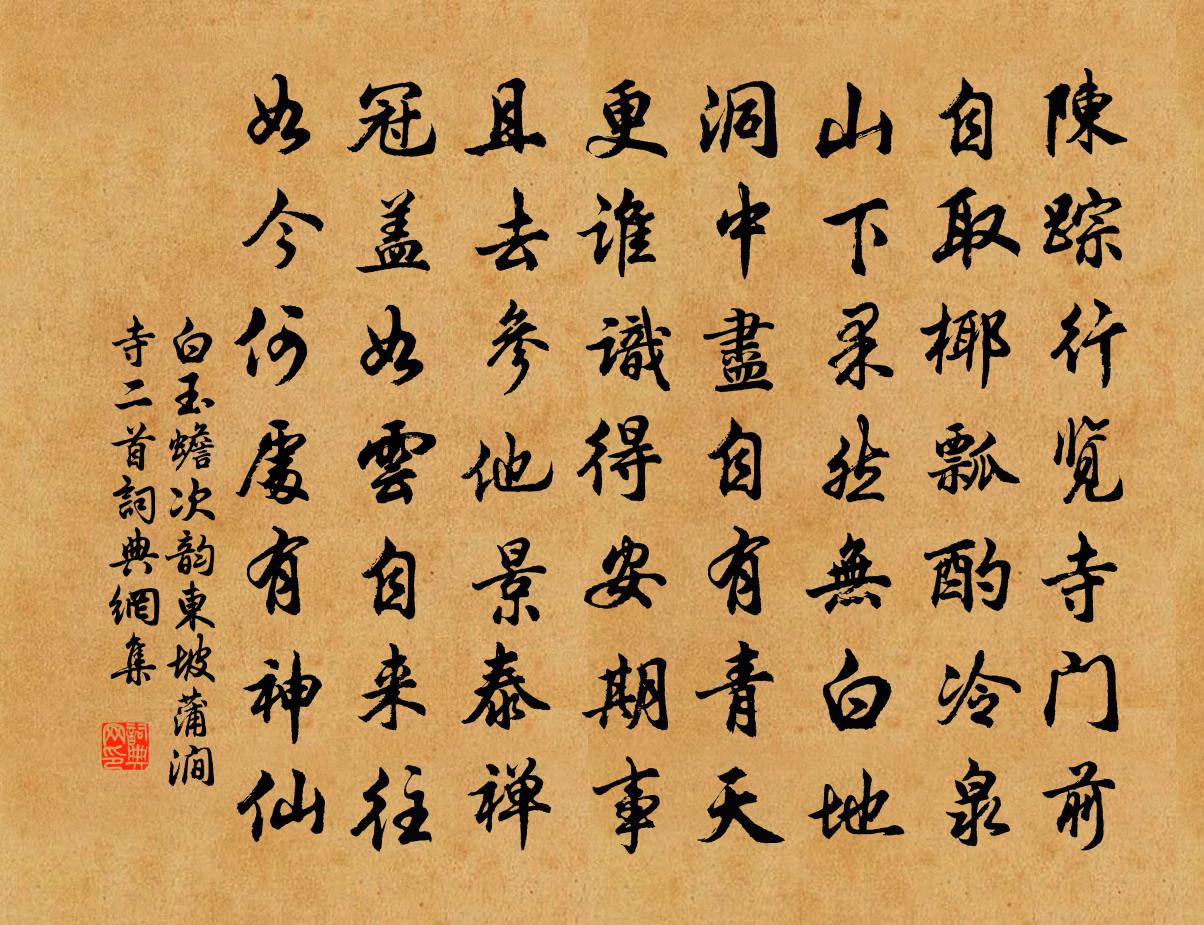 陳踪行览寺门前
自取椰瓢酌冷泉
山下果然無白地
洞中盡自有青天
更谁識得安期事
且去參他景泰禅
冠盖如雲自来往
如今何處有神仙
白玉蟾次韵東坡蒲澗
寺二首詞典網集
詞典
网印